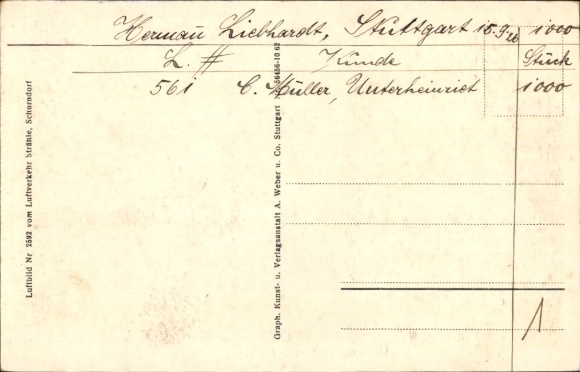 Hermann Liebhardt, Stuttgart 15.9.26 1000
L. # Kunde Stück
561 C. Müller, Unterheinriet 1000
Luftbild Nr 2592 vom Luftverkehr Strähle, Schorndorf
Graph. Kunst- u. Verlagsanstalt A. Weber u. Co. Stuttgart 56456-10 62
1